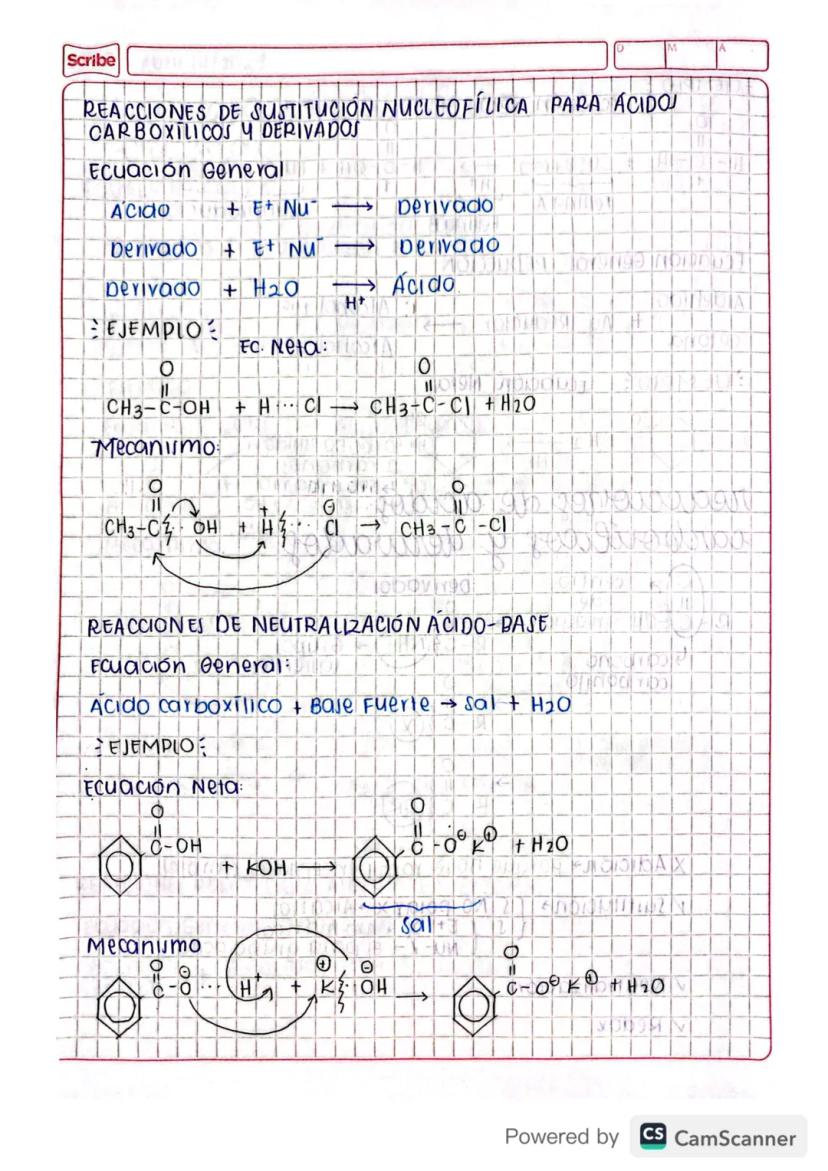 Scribe
D M A
REACCIONES DE SUSTITUCIÓN NUCLEOFÍLICA PARA ÁCIDOS
CARBOXÍLICOS Y DERIVADOS
Ecuación General
Ácido + E+ Nu- ⟶ Derivado
Derivado + E+ Nu- ⟶ Derivado
Derivado + H2O ⟶ Ácido
H+
EJEMPLO
Ec. Neta:
O O
|| ||
CH3-C-OH + H ··· Cl ⟶ CH3-C-Cl + H2O
Mecanismo:
O O
|| + ⊖ ||
CH3-C ·· OH + H ··· Cl → CH3-C-Cl
REACCIONES DE NEUTRALIZACIÓN ÁCIDO-BASE
Ecuación General:
Ácido carboxílico + Base Fuerte → Sal + H2O
EJEMPLO
Ecuación Neta:
O O
|| ||
C-OH + KOH ⟶ C-O⊖ K⊕ + H2O
Sal
Mecanismo
O ⊖ ⊕ ⊖ O
|| ||
C-O ··· H+ + K ·· OH ⟶ C-O⊖ K⊕ + H2O
Powered by CS CamScanner